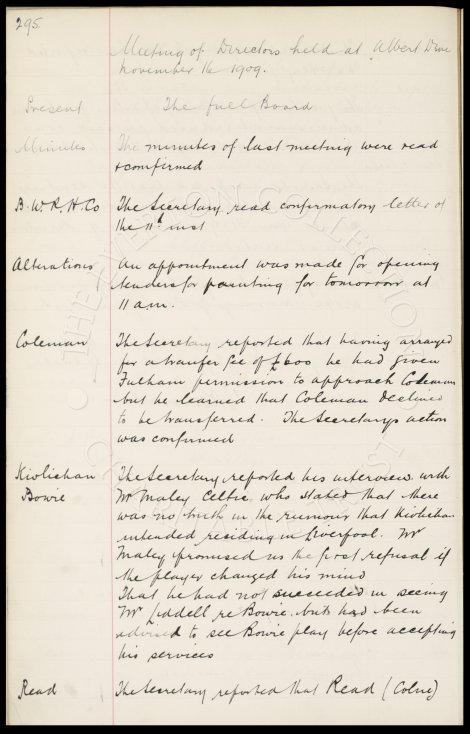 295.
Meeting of Directors held at Albert Drive
November 16 1909.
Present The full Board
Minutes The minutes of last meeting were read
& confirmed
B. W. R. H. Co The Secretary read confirmatory letter of
the 11th inst
Alterations An appointment was made for opening
tenders for painting for tomorrow at
11 am.
Coleman The Secretary reported that having arranged
for a transfer fee of £600 he had given
Fulham permission to approach Coleman
but he learned that Coleman declined
to be transferred. The Secretarys action
was confirmed
Kivlichan The Secretary reported his interview with
Bowie Mr Maley Celtic who stated that there
was no truth in the rumour that Kivlichan
intended residing in Liverpool. Mr
Maley promised us the first refusal if
the player changed his mind
That he had not succeeded in seeing
Mr Liddell re Bowie. but had been
advised to see Bowie play before accepting
his services
Read The Secretary reported that Read (Colne)
THE EVERTON COLLECTION